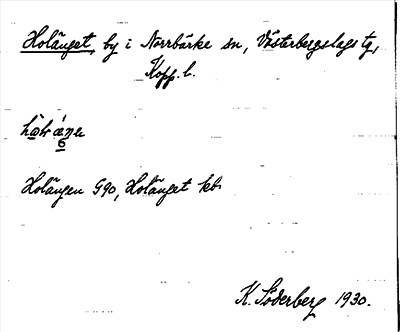 Holänget, by i Norrbärke sn, Västerbergslags tg,
Kopp. l.
Holängen G90, Holänget kb.
K. Söderberg 1930.